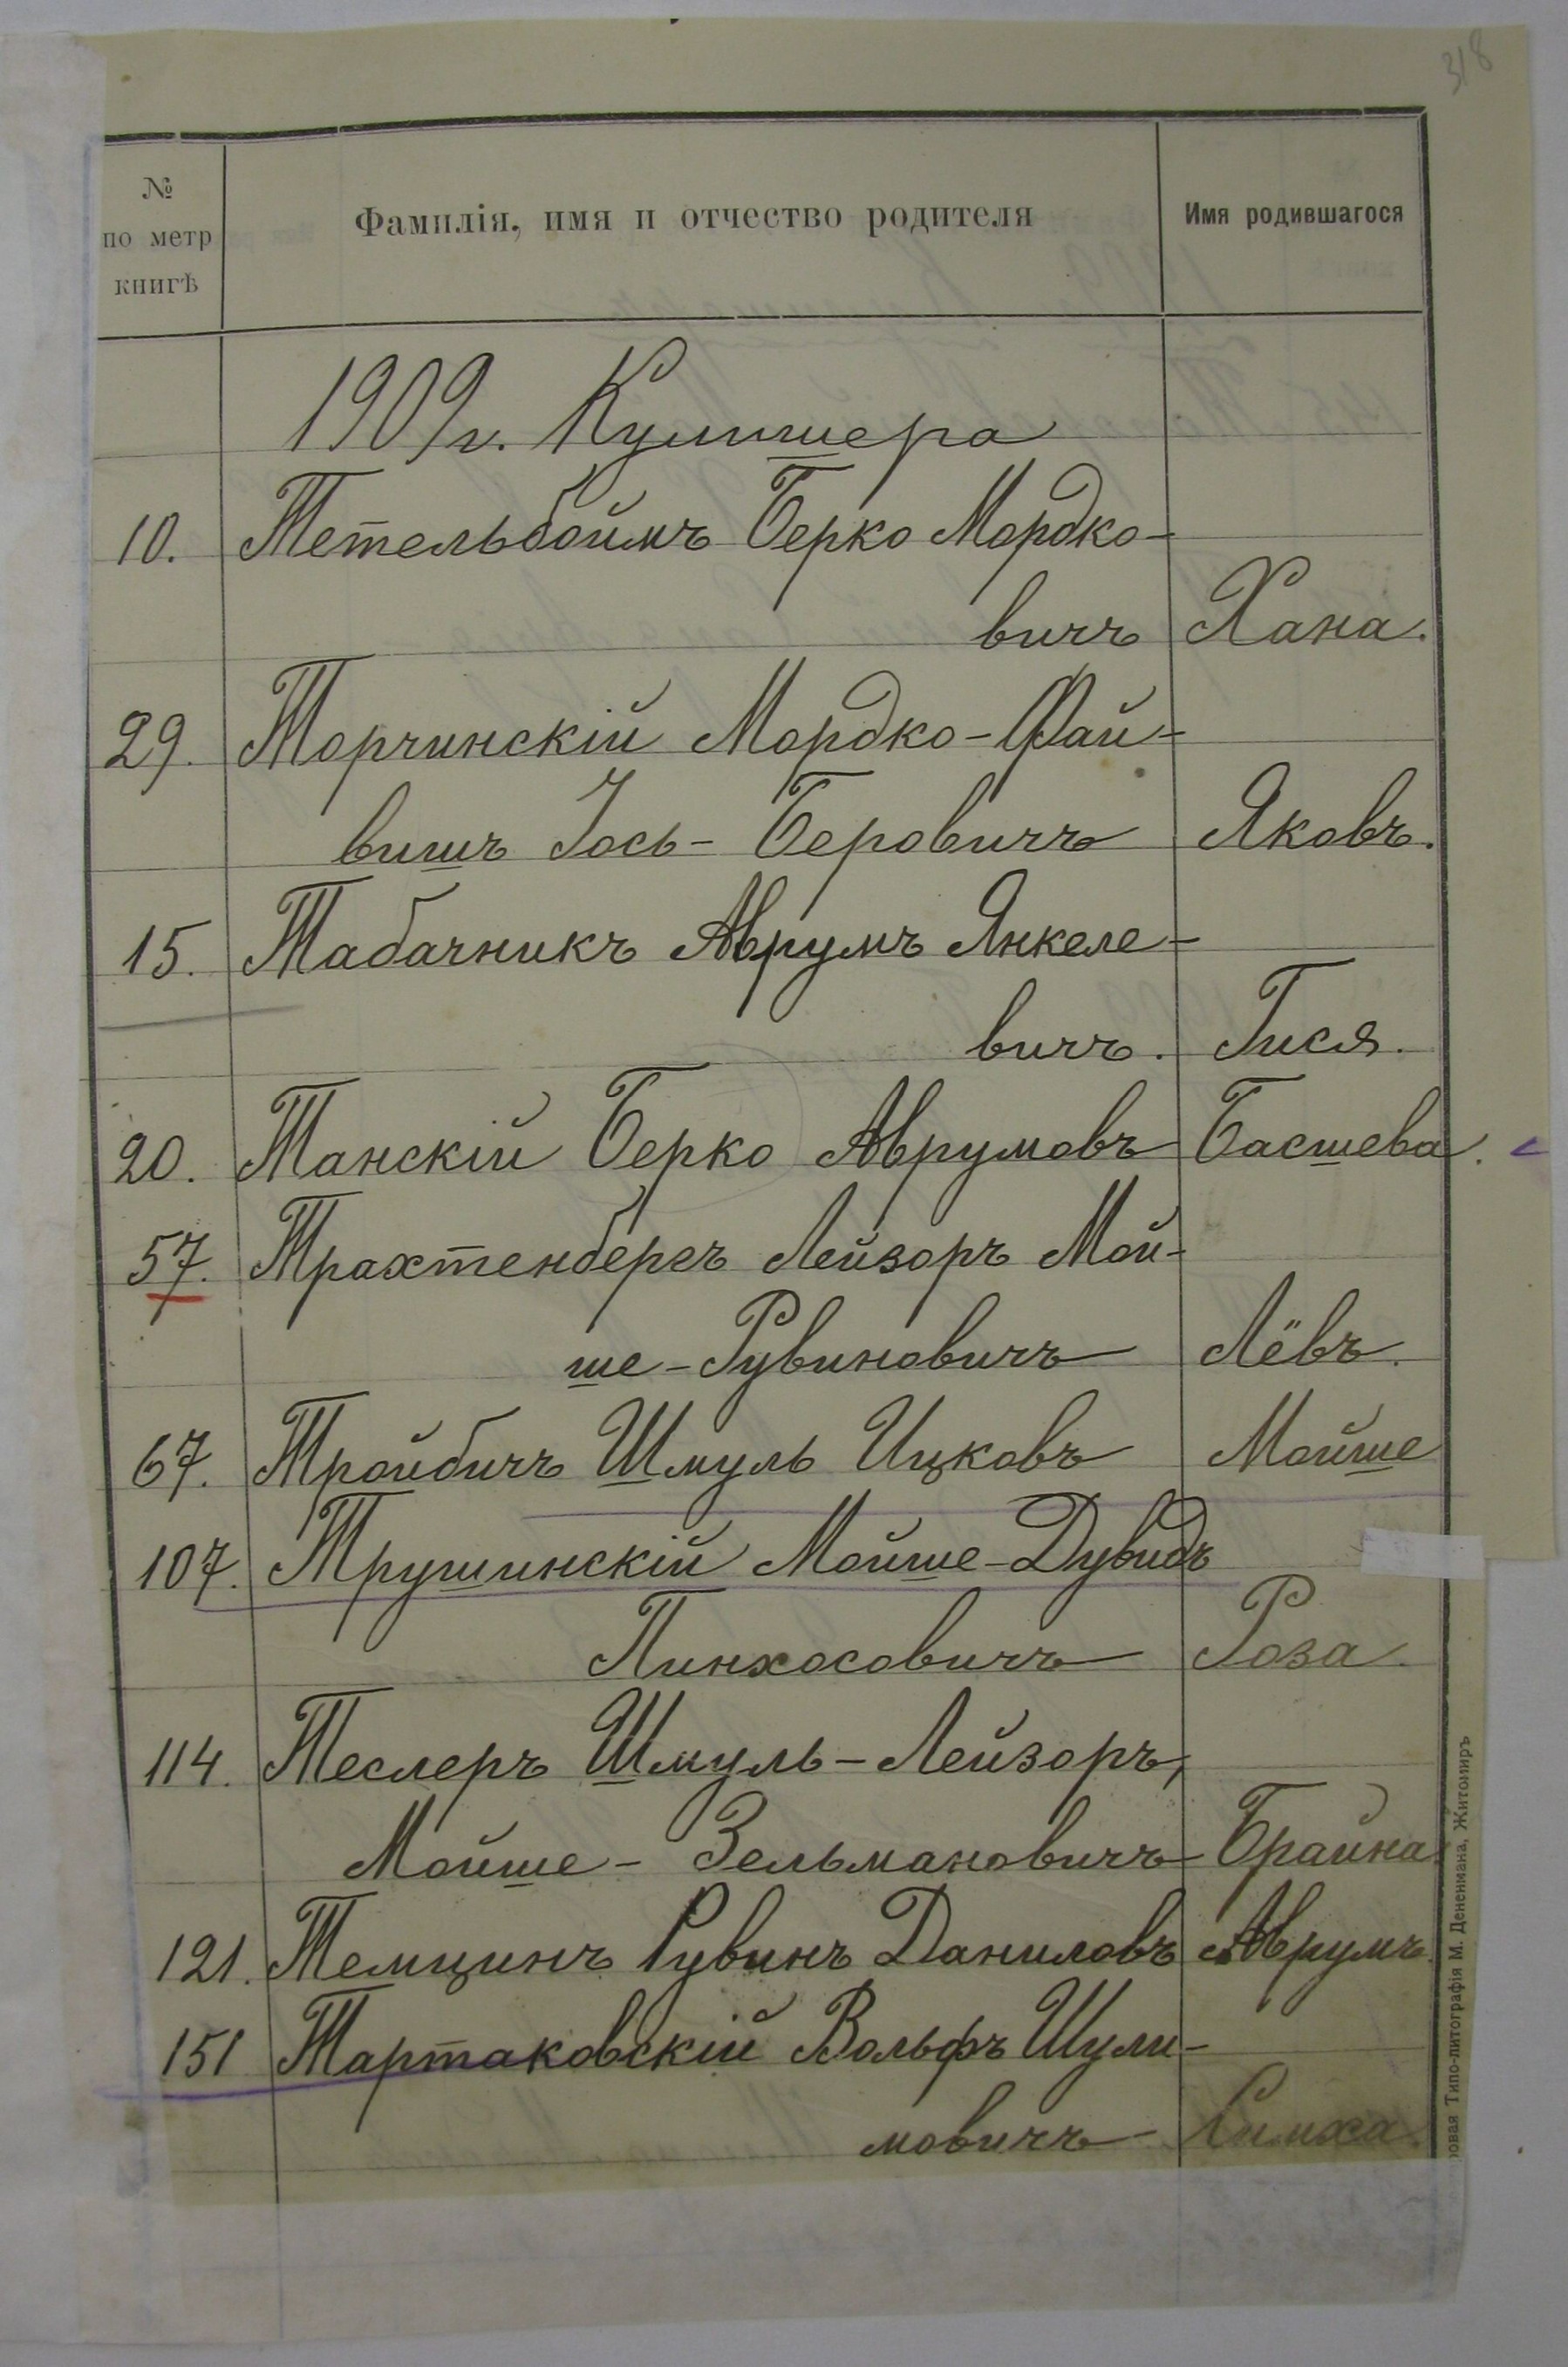 318
№
по метр
книгѣ
Фамилія, имя и отчество родителя
Имя родившагося
1909 г. Кулишера
10. Тетельбоймъ Берко Мордко-
вичъ Хана.
29. Торчинскій Мордко-Фай-
вишъ Іось-Беровичъ Яковъ.
15. Табачникъ Аврумъ Янкеле-
вичъ. Гися.
20. Танскій Берко Аврумовъ Басшева.
57. Трахтенбергъ Лейзоръ Мой-
ше-Рувиновичъ Лёвъ.
67. Тройбичъ Шмуль Ицковъ Мойше
107. Трушинскій Мойше-Дувидъ
Пинхосовичъ Роза.
114. Теслеръ Шмуль-Лейзоръ,
Мойше-Зельмановичъ Брайна.
121. Темцинъ Рувинъ Даниловъ Аврумъ.
151 Тартаковскій Вольфъ Шули-
мовичъ Симха.
ровая Типо-литографія М. Дененмана, Житомиръ